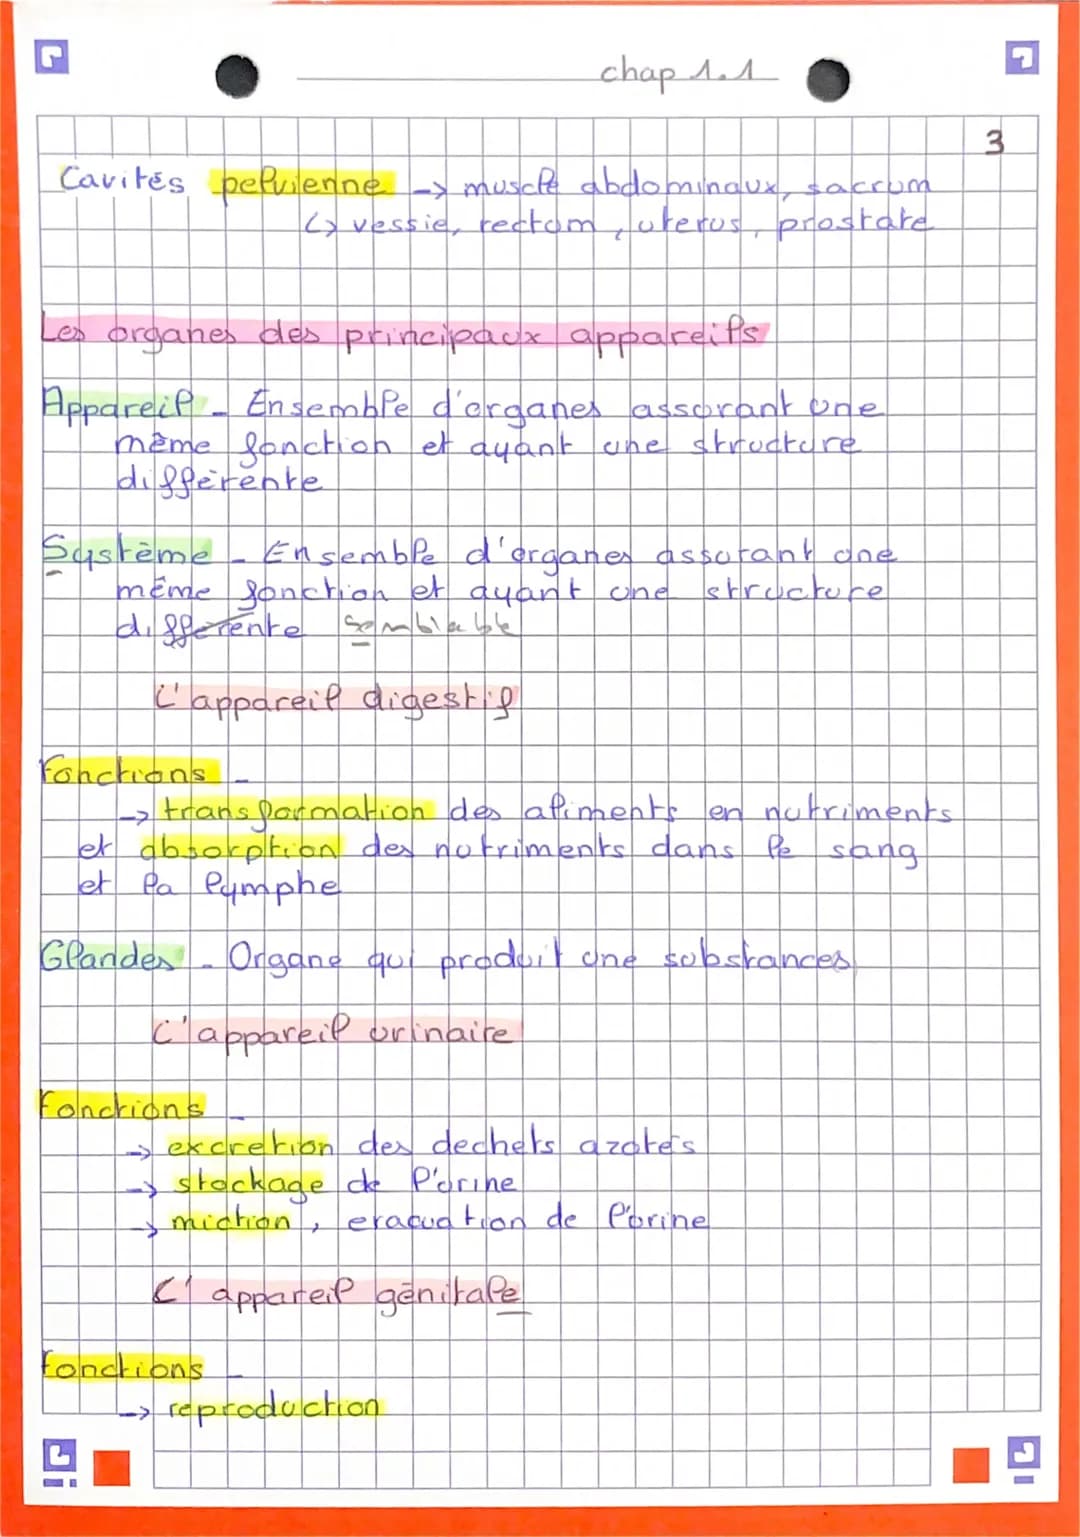 chap 1.1
3
Cavités pelvienne -> muscle abdominaux, sacrum
↳ vessie, rectum, uterus, prostate
Les organes des principaux appareils
Appareil - Ensemble d'organes assurant une
même fonction et ayant une structure
différente
Système - Ensemble d'organes assurant une
même fonction et ayant une structure
différente semblable
L'appareil digestif
Fonctions -
-> transformation des aliments en nutriments
et absorption des nutriments dans le sang
et la lymphe
Glandes - Organe qui produit une substances
L'appareil urinaire
Fonctions -
-> excretion des dechets azotés
-> stockage de l'urine
-> miction, evacuation de l'urine
L'appareil génitale
Fonctions -
-> reproduction